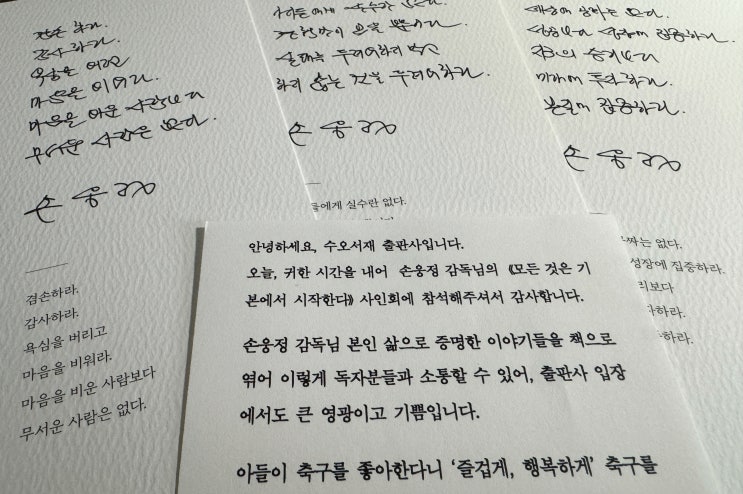 겸손하라.
감사하라.
욕심을 버리고
마음을 비워라.
마음을 비운 사람보다
무서운 사람은 없다.
손웅정
겸손하라.
감사하라.
욕심을 버리고
마음을 비워라.
마음을 비운 사람보다
무서운 사람은 없다.
실패를 두려워하지 말고
하지 않는 것을 두려워하라.
손웅정
들에게 실수란 없다.
성장에 집중하라.
미래에 투자하라.
본질에 집중하라.
손웅정
짜는 없다.
성장에 집중하라.
리보다
자하라.
하라.
안녕하세요, 수오서재 출판사입니다.
오늘, 귀한 시간을 내어 손웅정 감독님의 《모든 것은 기
본에서 시작한다》 사인회에 참석해주셔서 감사합니다.
손웅정 감독님 본인 삶으로 증명한 이야기들을 책으로
엮어 이렇게 독자분들과 소통할 수 있어, 출판사 입장
에서도 큰 영광이고 기쁨입니다.
아들이 축구를 좋아한다니 ‘즐겁게, 행복하게’ 축구를